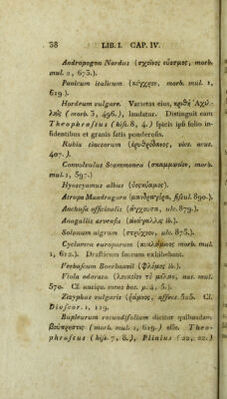 38 LIB. I. CAP. IV.
Andropogon Nardus (σχοῖνος εὔοσμος, morb.
mul. 2, 673.).
Panicum italicum (κέγχρον, morb. mul. 1,
619.).
Hordeum vulgare. Varietas eius, κριθὴ Ἀχιλ-
λῇς (morb. 3, 496.), laudatur. Distinguit eam
Theophrastus (hist. 8, 4.) spicis ipsi folio in-
sidentibus et granis satis ponderosis.
Rubia tinctorum (ἐρυθρόδανος, vict. acut.
407.).
Convolvulus Scammonea (σκαμμώνιον, morb.
mul. 1, 597.)
Hyoscyamus albus (ὑοσκύαμος).
Atropa Mandragora (μανδραγόρα, fistul. 890.).
Anchusa officinalis (ἄγχουσα, ulc. 879.).
Anagallis arvensis (ἀναγαλλὶς ib.).
Solanum nigrum (στρύχνον, ulc. 875.).
Cyclamen europaeum (κυκλάμινος morb. mul.
1, 612.). Drasticum sacrum exhibebant.
Verbascum Boerhaavii (φλόμος ib.).
Viola odorata (λευκοΐον τὸ μέλαν, nat. mul.
570. Cf. antiqu. notas bot. p. 4, 5.).
Zizyphus vulgaris (ῥάμνος, affect. 525. Cf.
Dioscor. 1, 119.
Bupleurum rotundifolium dicitur quibusdam
βούπρηστις (morb. mul. 1, 619.) esse. Theo-
phrastus (hist. 7, 8.), Plinius (22, 22.)